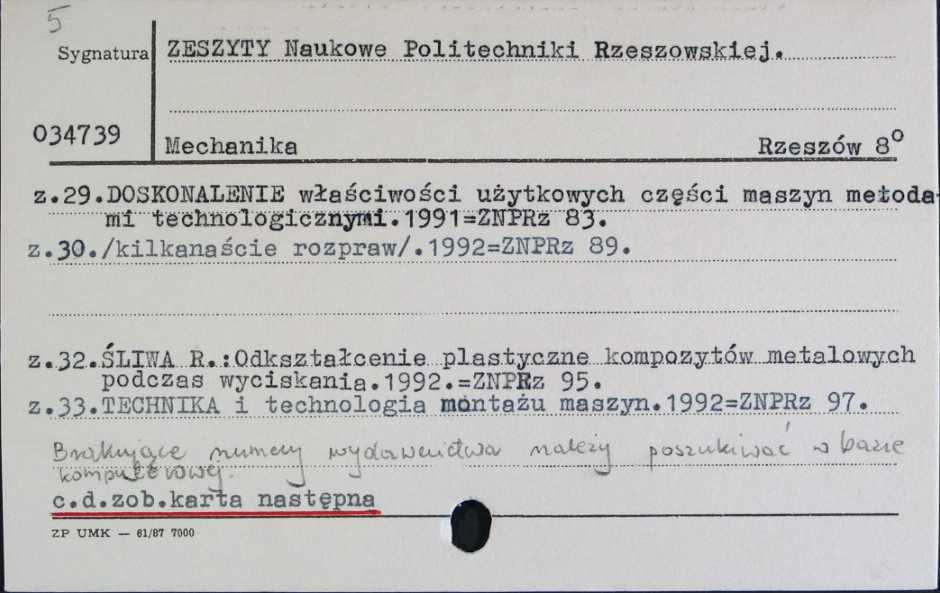 5
Sygnatura
ZESZYTY Naukowe Politechniki Rzeszowskiej.
034739
Mechanika Rzeszów 8º
z.29.DOSKONALENIE właściwości użytkowych części maszyn metoda-
mi technologicznymi.1991=ZNPRz 83.
z.30./kilkanaście rozpraw/.1992=ZNPRz 89.
z.32.ŚLIWA R.:Odkształcenie plastyczne kompozytów metalowych
podczas wyciskania.1992.=ZNPRz 95.
z.33.TECHNIKA i technologia montażu maszyn.1992=ZNPRz 97.
Brakujące numery wydawnictwa należy poszukiwać w bazie
komputerowej.
c.d.zob.karta następna
ZP UMK — 61/87 7000